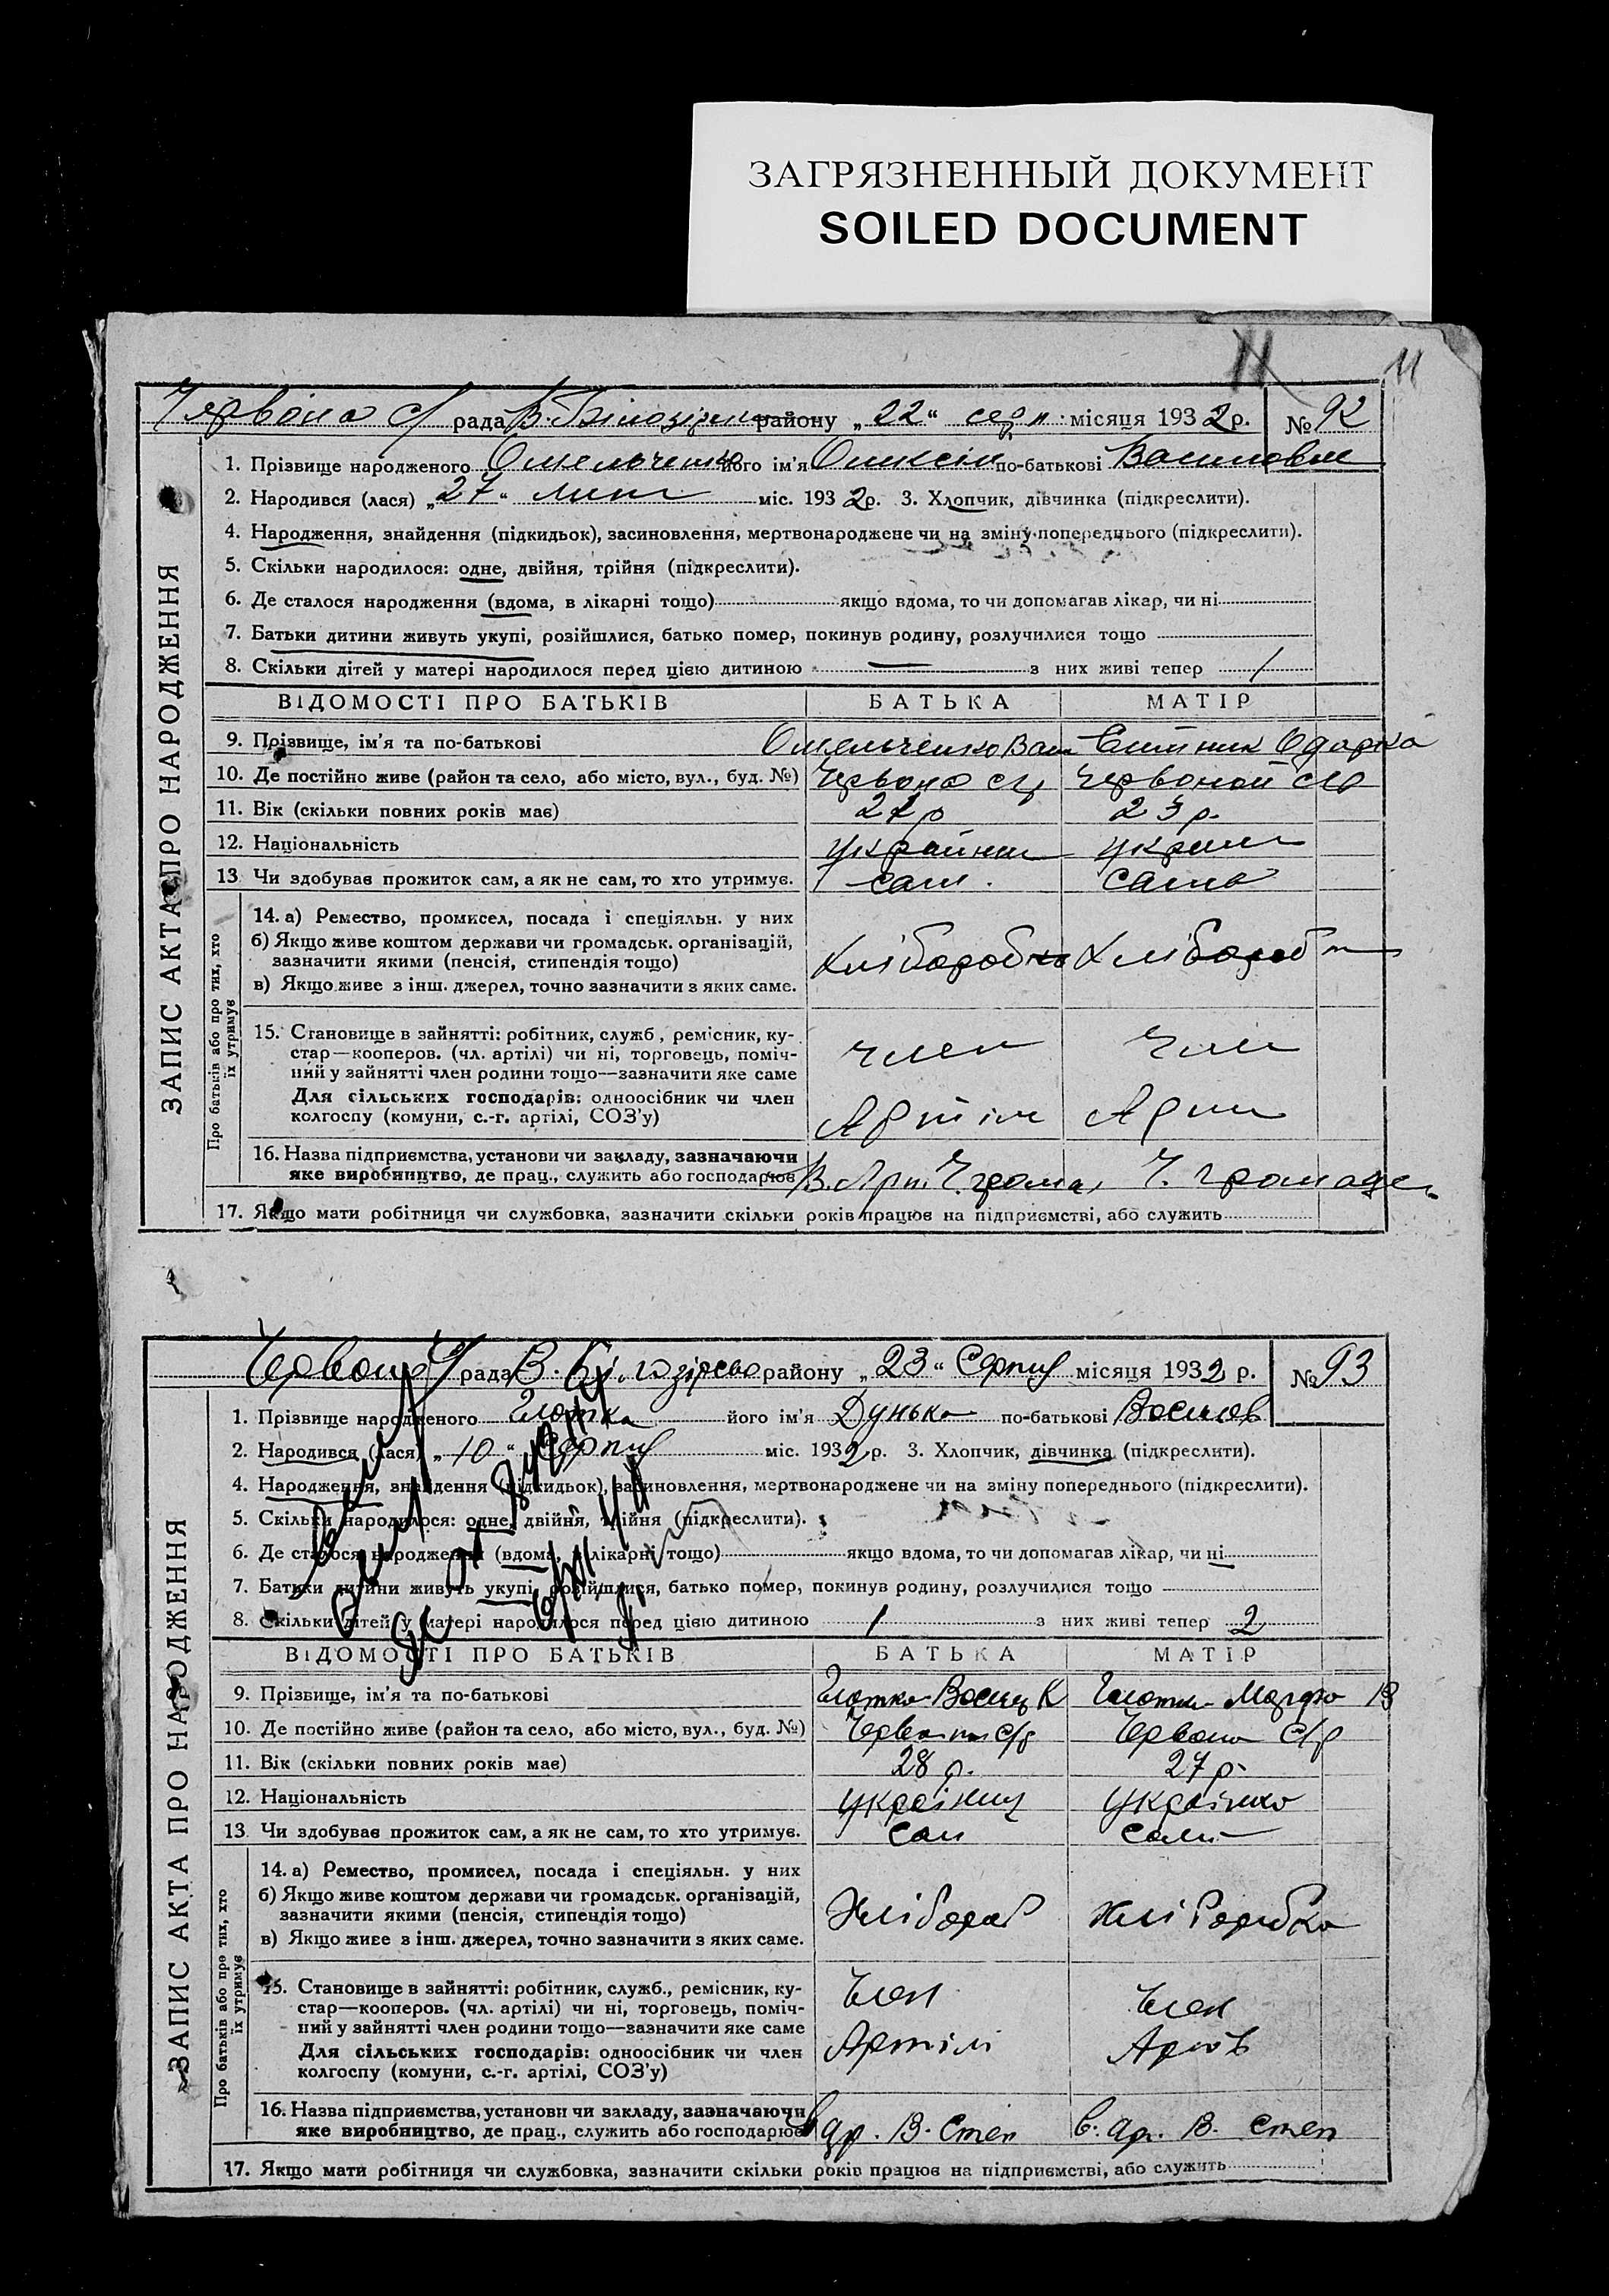 ЗАГРЯЗНЕННЫЙ ДОКУМЕНТ
SOILED DOCUMENT
11
11
Червона с/ рада В. Білозірк району „22“ серп. місяця 1932 р. № 92
ЗАПИС АКТА ПРО НАРОДЖЕННЯ
1. Прізвище народженого Омельченко його ім'я Олексій по-батькові Васильов
2. Народився (лася) „27“ лип міс. 1932 р. 3. Хлопчик, дівчинка (підкреслити).
4. Народження, знайдення (підкидьок), засиновлення, мертвонароджене чи на зміну попереднього (підкреслити).
5. Скільки народилося: одне, двійня, трійня (підкреслити).
6. Де сталося народження (вдома, в лікарні тощо) якщо вдома, то чи допомагав лікар, чи ні
7. Батьки дитини живуть укупі, розійшлися, батько помер, покинув родину, розлучилися тощо
8. Скільки дітей у матері народилося перед цією дитиною — з них живі тепер 1
ВІДОМОСТІ ПРО БАТЬКІВ БАТЬКА МАТІР
9. Прізвище, ім'я та по-батькові Омельченко Вас Ситник Одарка
10. Де постійно живе (район та село, або місто, вул., буд. №) Червона с/ Червоной с/
11. Вік (скільки повних років має) 22 р 23 р.
12. Національність українец україн
13. Чи здобуває прожиток сам, а як не сам, то хто утримує. сам. сама
Про батьків або про тих, хто їх утримує
14. а) Ремество, промисел, посада і спеціяльн. у них
б) Якщо живе коштом держави чи громадськ. організацій,
зазначити якими (пенсія, стипендія тощо) Хлібороб Хлібороб
в) Якщо живе з інш. джерел, точно зазначити з яких саме.
15. Становище в зайнятті: робітник, служб., ремісник, ку-
стар—кооперов. (чл. артілі) чи ні, торговець, поміч- член член
ний у зайнятті член родини тощо—зазначити яке саме
Для сільських господарів: одноосібник чи член
колгоспу (комуни, с.-г. артілі, СОЗ'у) Артіл Арт
16. Назва підприємства, установи чи закладу, зазначаючи
яке виробництво, де прац., служить або господарює В. Арт. Ч. грома, Ч. громаде
17. Якщо мати робітниця чи службовка, зазначити скільки років працює на підприємстві, або служить
Червона с/ рада В. Білозірсько району „23“ Серпня місяця 1932 р. № 93
ЗАПИС АКТА ПРО НАРОДЖЕННЯ
1. Прізвище народженого Глотка його ім'я Дунька по-батькові Василів
2. Народився (лася) „10“ Серпня міс. 1932 р. 3. Хлопчик, дівчинка (підкреслити).
4. Народження, знайдення (підкидьок), засиновлення, мертвонароджене чи на зміну попереднього (підкреслити).
5. Скільки народилося: одне, двійня, трійня (підкреслити).
6. Де сталося народження (вдома, в лікарні тощо) якщо вдома, то чи допомагав лікар, чи ні
7. Батьки дитини живуть укупі, розійшлися, батько помер, покинув родину, розлучилися тощо
8. Скільки дітей у матері народилося перед цією дитиною 1 з них живі тепер 2
ВІДОМОСТІ ПРО БАТЬКІВ БАТЬКА МАТІР
9. Прізвище, ім'я та по-батькові Глотка Василь К Глотка Марфа В
10. Де постійно живе (район та село, або місто, вул., буд. №) Червона с/р Червона с/р
11. Вік (скільки повних років має) 28 р. 27 р.
12. Національність українец українка
13. Чи здобуває прожиток сам, а як не сам, то хто утримує. сам сама
Про батьків або про тих, хто їх утримує
14. а) Ремество, промисел, посада і спеціяльн. у них
б) Якщо живе коштом держави чи громадськ. організацій,
зазначити якими (пенсія, стипендія тощо) Хлібороб хліборобка
в) Якщо живе з інш. джерел, точно зазначити з яких саме.
15. Становище в зайнятті: робітник, служб., ремісник, ку-
стар—кооперов. (чл. артілі) чи ні, торговець, поміч- Член Член
ний у зайнятті член родини тощо—зазначити яке саме
Для сільських господарів: одноосібник чи член Артілі
колгоспу (комуни, с.-г. артілі, СОЗ'у)
16. Назва підприємства, установи чи закладу, зазначаючи
яке виробництво, де прац., служить або господарює в ар. В. Степ в. ар. В. степ
17. Якщо мати робітниця чи службовка, зазначити скільки років працює на підприємстві, або служить